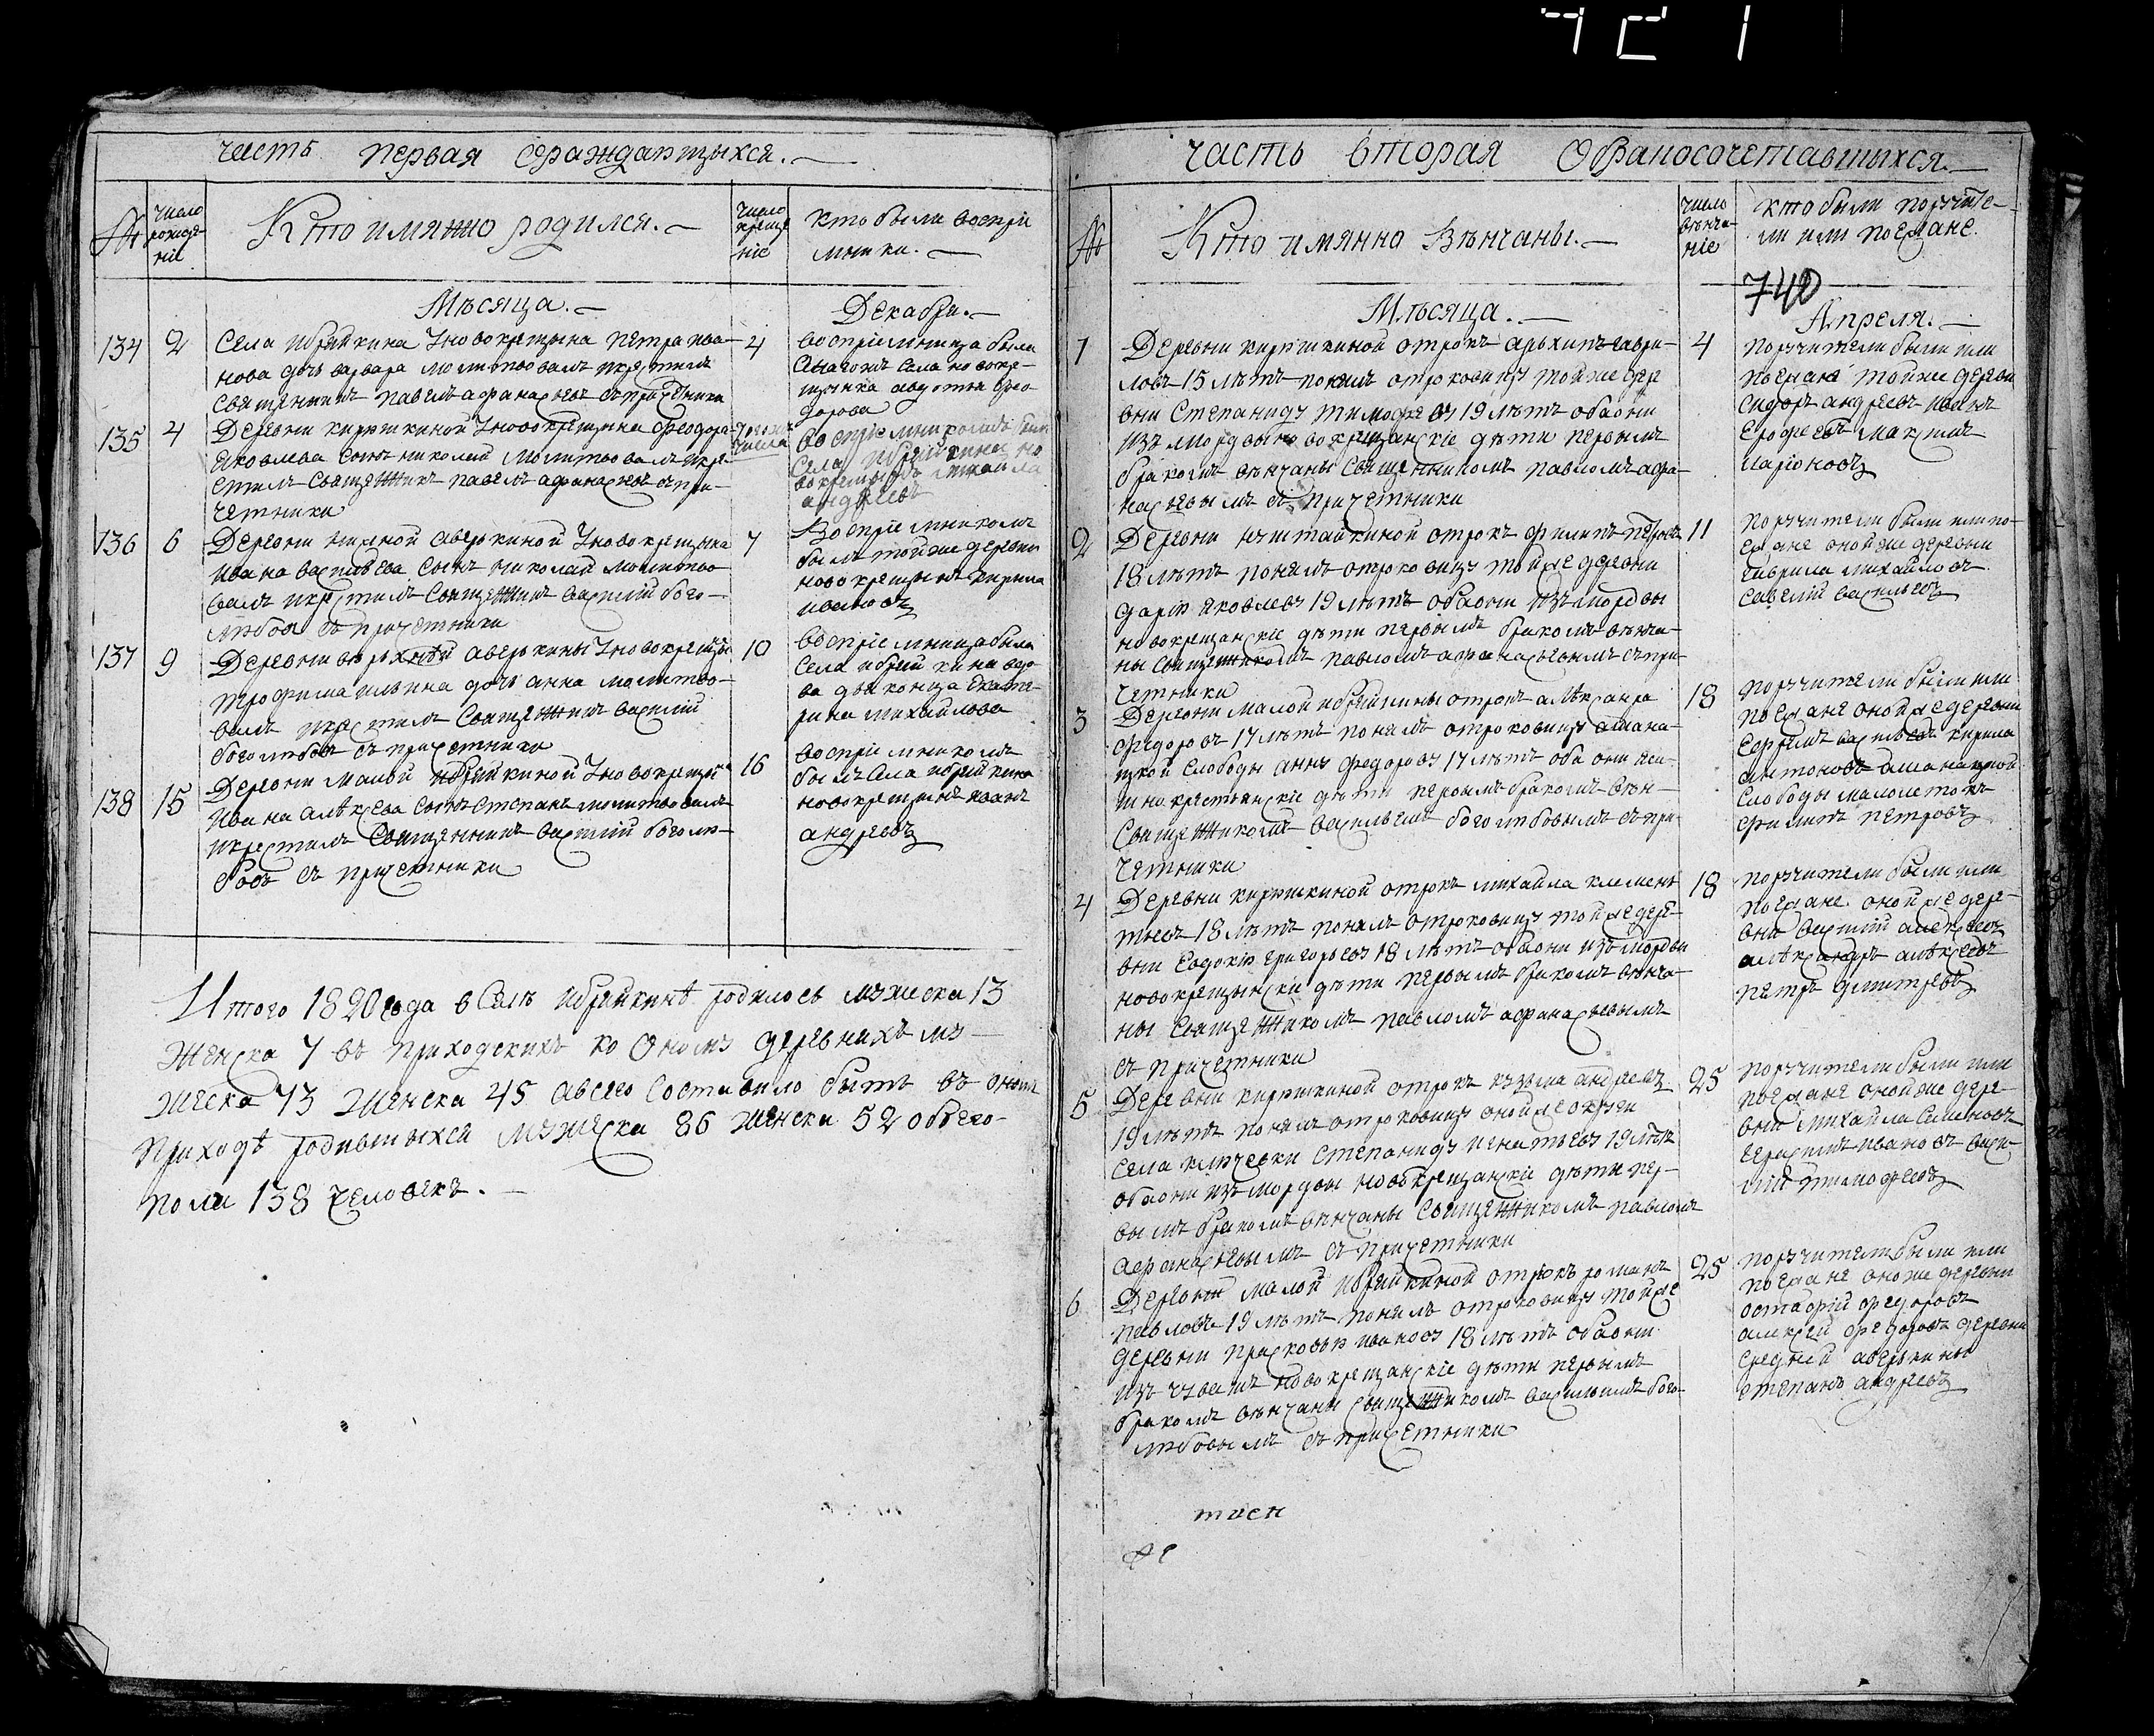 часть первая сораждающыхся.
№
число рожде ніе
Кто имянно родился.
число креще ніе
кто были воспрі
мники.
Мѣсяца.
Декабря.
134 2
Села ибряйкина У новокрещына петра ива-
нова дочь варвара молитвовалъ икрестилъ
Священникъ павелъ афанасьевъ съпричетники
4
восприемница была
новокре-
щынка авдотья фео
дорова
135 4
Деревни кирюшкиной Уновокрещына феодора
яковлева сынъ николай молитвовалъ икре-
стилъ Священникъ павелъ афанасьевъ съпри-
четники
тогоже числа
воспріемникомъ былъ
Села ибряйкина но
вокрещынъ михайла
андреевъ
136 6
Деревни нижной аверкиной Уновокрещына
ивана васильева Сынъ николай молитво
валъ икрестилъ Священникъ василій бого-
любовъ съ причетники
7
Воспріемникомъ
былъ тойже деревни
новокрещынъ кирила
ивановъ
137 9
Деревни верьхней аверькины Уновокрещына
трофима ильина дочь анна молитво-
валъ икрестилъ Священникъ василий
боголюбовъ съ причетники
10
воспріемница была
села ибряйкина вдо-
ва дьяконица екате-
рина михайлова
138 15
Деревни малой ибряйкиной Уновокрещына
Ивана алексеева Сынъ Степанъ молитвовалъ
икрестилъ Священникъ василий боголю-
бовъ съ причетники
16
воспріемникомъ
былъ села ибряйкина
новокрещынъ иванъ
андреевъ
Итого 1820 года в Селѣ ибряйкинѣ родилось мужеска 13
Женска 7 въ приходскихъ ко Оному деревняхъ му-
жеска 73 женска 45 авсего Составило быть въ ономъ
приходѣ родившыхся мужеска 86 женска 52 обоего-
пола 138 человекъ.
часть вторая Обраносочетавшыхся.
№
Кто имянно Вѣнчаны.
число вѣнча- ніе
кто были поручите-
ли или поезжане.
740
Мѣсяца.
Апреля.
1
Деревни кирюшкиной отрокъ архипъ гаври-
ловъ 15 лѣтъ понялъ отроковицу тойже дере
вни Степаниду тимофееву 19 лѣтъ обаони
изъ мордвы новокрещанскіе дѣти первымъ
бракомъ вѣнчаны Священникомъ павломъ афа-
насьевымъ съ причетники
4
поручители были или
поезжанѣ тойже деревни
Сидоръ андреевъ иванъ
Ерофеевъ максимъ
ларіоновъ
2
Деревни отрокъ филипъ петровъ
18 лѣтъ понялъ отроковицу тойже деревни
дарію яковлеву 19 лѣтъ обаони изъ мордвы
новокрещанскіе дѣти первымъ бракомъ вѣнча-
ны Священникомъ павломъ афанасьевымъ съпри-
четники
11
поручители были илипо-
езжане онойже деревни
гаврила михайловъ
Савелий васильевъ
3
Деревни малой ибряйкины отрокъ алѣксандра
федоровъ 17 лѣтъ понялъ отроковицу
Слободы анну федорову 17 лѣтъ оба они
крестьянскіе дѣти первымъ бракомъ вѣн-
Священникомъ васильемъ боголюбовымъ съпри-
четники
18
поручители были или
поезжане онойже деревни
Ефремъ васильевъ кирила
антоновъ
Слободы
филипъ петровъ
4
Деревни кирюшкиной отрокъ михайла клемень
тьевъ 18 лѣтъ понялъ отроковицу тойже дере-
вни Евдокію григорьеву 18 лѣтъ обаони изъ мордвы
новокрещынскіе дѣти первымъ бракомъ вѣнча-
ны Священникомъ павломъ афанасьевымъ
съ причетники
18
поручители были или
поезжане онойже дере-
вни василий алексеевъ
алѣксандръ алѣксеевъ
петръ дмитреевъ
5
Деревни кирюшкиной отрокъ кузьма андреевъ
19 лѣтъ понялъ отроковицу онойже округи
Села ключевки Степаниду игнатьеву 19 лѣтъ
обаони изъ мордвы новокрещанскіе дѣти пер-
вымъ бракомъ вѣнчаны Священникомъ павломъ
афанасьевымъ съ причетники
25
поручители были или
поезжане онойже дере-
вни михайла Семеновъ
герасимъ ивановъ васи-
лий тимофеевъ
6
Деревни малой ибряйкиной отрокъ романъ
павловъ 19 лѣтъ понялъ отроковицу тойже
деревни прасковью иванову 18 лѣтъ обаони
изъ чувашъ новокрещанскіе дѣти первымъ
бракомъ вѣнчаны Священникомъ васильемъ бого-
любовымъ съ причетники
25
поручители были или
поезжане оноже деревни
остафій федоровъ
алексей федоровъ деревни
средней аверькины
степанъ андреевъ